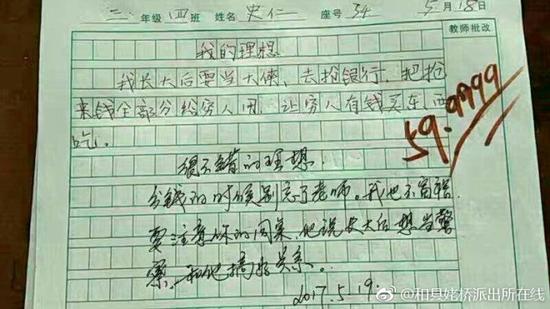 二年级四班 姓名 史仁 座号 34 5月18日
教师批改
我的理想
我长大后要当大侠、去抢银行.把抢
来钱全部分给穷人用.让穷人有钱买东西
吃.
59.9999
很不错的理想.
分钱的时候别忘了老师。我也不富裕
要注意你的同桌他说长大后想当警
察.和他搞好关系。
2017.5.19.
@和县姥桥派出所在线